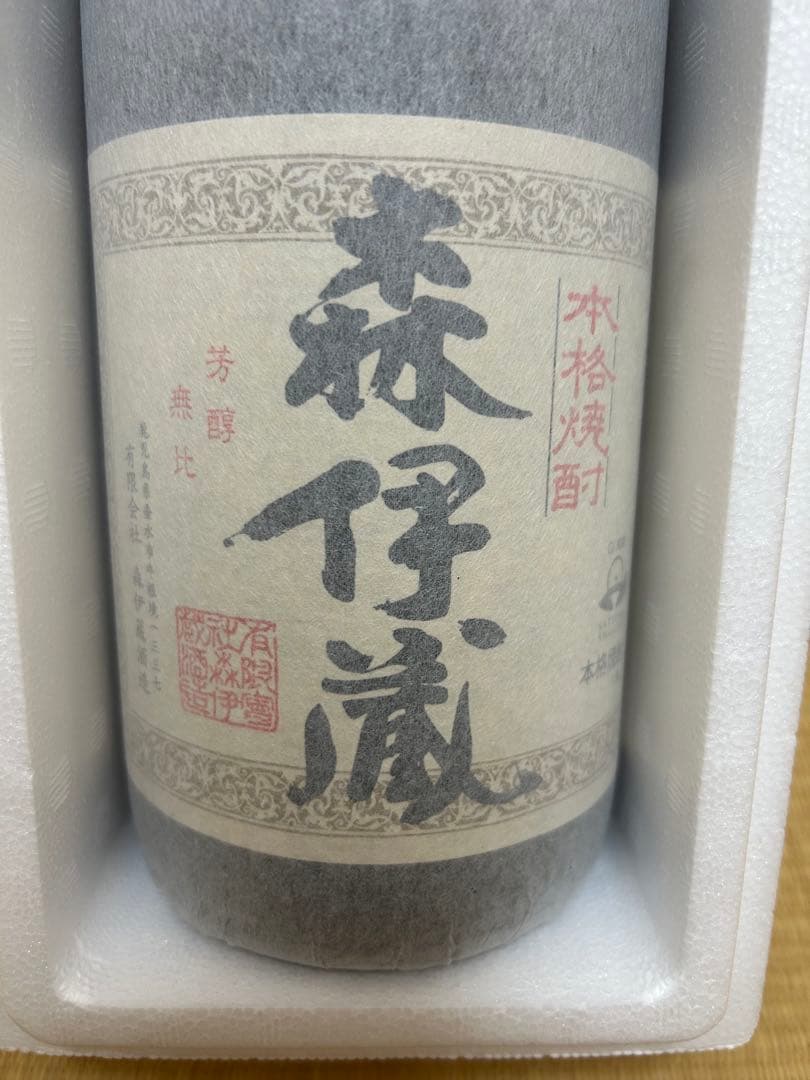 本格焼酎
森伊蔵
芳醇
無比
鹿児島県垂水市牛根境一三三七
有限会社 森伊蔵酒造
有限會
社森伊
蔵酒造
本格焼